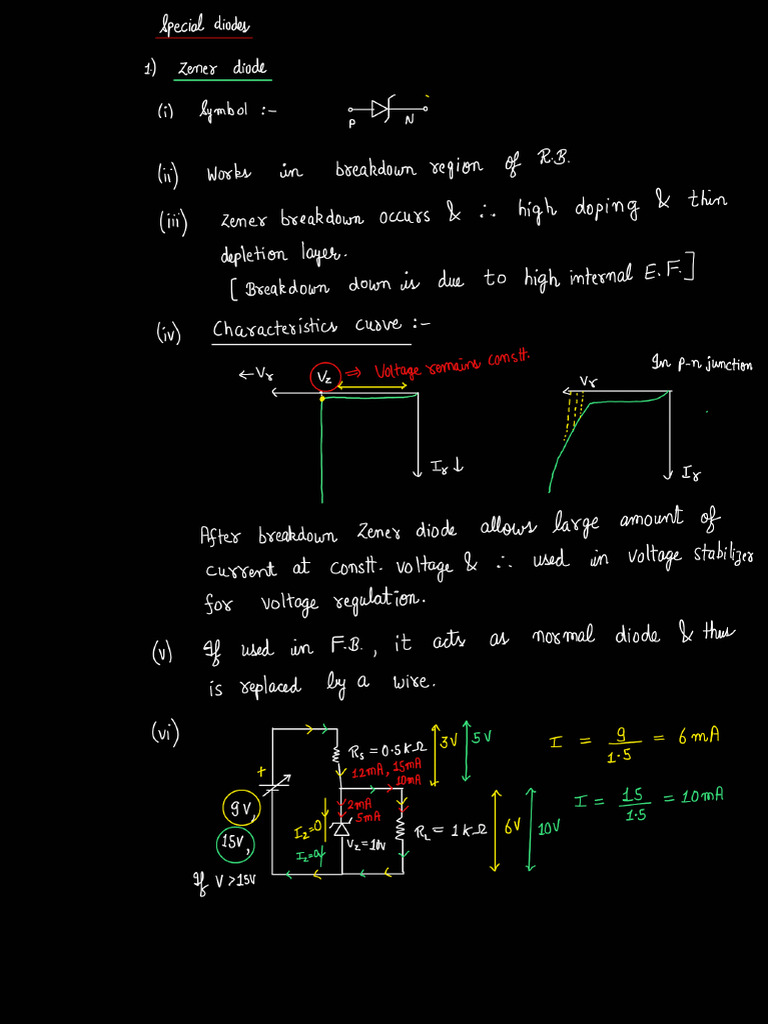 Special diodes
1.) Zener diode
(i) Symbol :-
P N
(ii) Works in breakdown region of R.B.
(iii) Zener breakdown occurs & ∴ high doping & thin
depletion layer.
[Breakdown down is due to high internal E.F.]
(iv) Characteristics curve :-
←Vr
Vz ⇒ Voltage remains constt.
Ir ↓
In p-n junction
Vr
Ir
After breakdown Zener diode allows large amount of
current at constt. voltage & ∴ used in voltage stabilizer
for voltage regulation.
(v) If used in F.B., it acts as normal diode & thus
is replaced by a wire.
(vi)
+
9V,
15V,
If V > 15V
Rs = 0.5kΩ
12mA, 15mA
10mA
2mA
5mA
Iz=0
Iz=0
Vz=10V
RL = 1kΩ
3V
5V
6V
10V
I = 9/1.5 = 6mA
I = 15/1.5 = 10mA